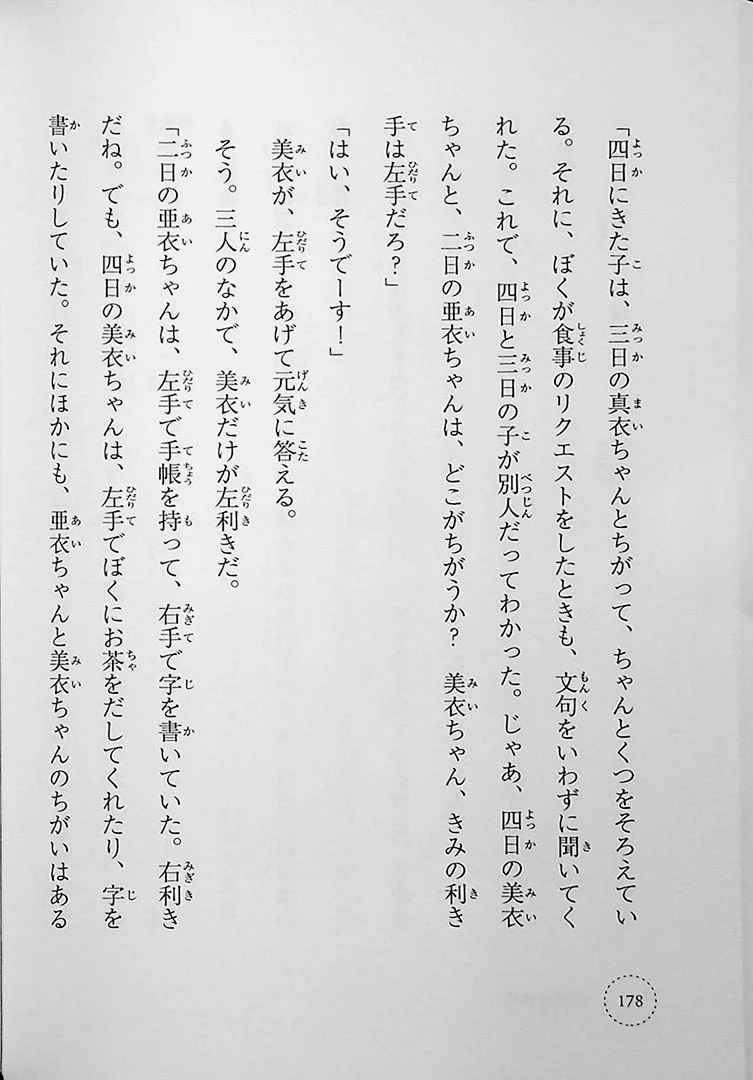 「四日にきた子は、三日の真衣ちゃんとちがって、ちゃんとくつをそろえてい
る。それに、ぼくが食事のリクエストをしたときも、文句をいわずに聞いてく
れた。これで、四日と三日の子が別人だってわかった。じゃあ、四日の美衣
ちゃんと、二日の亜衣ちゃんは、どこがちがうか？　美衣ちゃん、きみの利き
手は左手だろ？」
「はい、そうでーす！」
美衣が、左手をあげて元気に答える。
そう。三人のなかで、美衣だけが左利きだ。
「二日の亜衣ちゃんは、左手で手帳を持って、右手で字を書いていた。右利き
だね。でも、四日の美衣ちゃんは、左手でぼくにお茶をだしてくれたり、字を
書いたりしていた。それにほかにも、亜衣ちゃんと美衣ちゃんのちがいはある
178